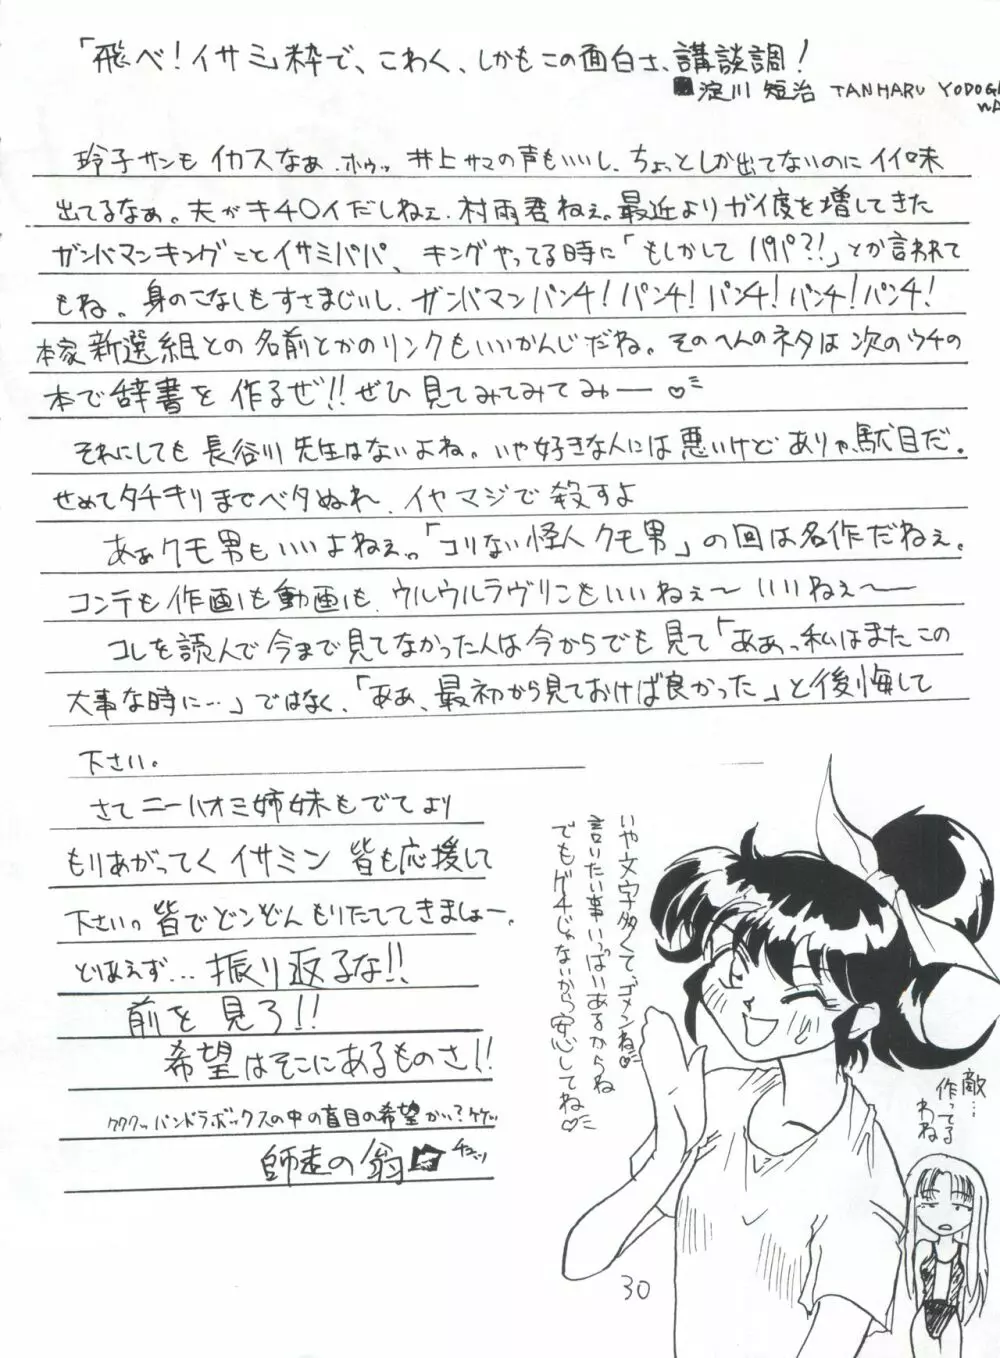 「飛べ!イサミ」粋で、こわく、しかもこの面白さ、講談調!
■淀川 短治 TANHARU YODOGAWA
玲子サンもイカスなぁ、ホゥッ 井上サマの声もいいし、ちょっとしか出てないのにイイ味
出てるなぁ。夫がキ40イだしねぇ、村雨君ねぇ。最近よりガイ度を増してきた
ガンバマンキングことイサミパパ、キングやってる時に「もしかしてパパ?!」とか言われて
もね。身のこなしもすさまじいし、ガンバマンパンチ!パンチ!パンチ!パンチ!パンチ!
本家新選組との名前とかのリンクもいいかんじだね。そのへんのネタは次のウチの
本で辞書を作るぜ!!ぜひ見てみてみてみゅー♡
それにしても長谷川先生はないよね。いや好きな人には悪いけどありゃ駄目だ。
せめてタチキリまでベタぬれ、イヤマジで殺すよ
あぁクモ男もいいよねぇ。「コリない怪人クモ男」の回は名作だねぇ。
コンテも作画も動画も、ウルウルラヴリこもいいねぇ〜いいねぇ〜
コレを読んで今まで見てなかった人は今からでも見て「ああっ私はまたこの
大事な時に…」ではなく、「ああ、最初から見ておけば良かった」と後悔して
下さい。
さてニーハオミ姉妹もでてより
もりあがってくイサミン 皆も応援して
下さいっ皆でどンどんもりたててきましょー。
とりあえず…振り返るな!!
前を見ろ!!
希望はそこにあるものさ!!
クククッパンドラボックスの中の盲目の希望かい?ケケッ
師走の翁 チュッ
いや文字多くて、ゴメンね♡
言いたい事いっぱいあるからね
でもグチじゃないから安心してね♡
敵…
作ってる
わね
30